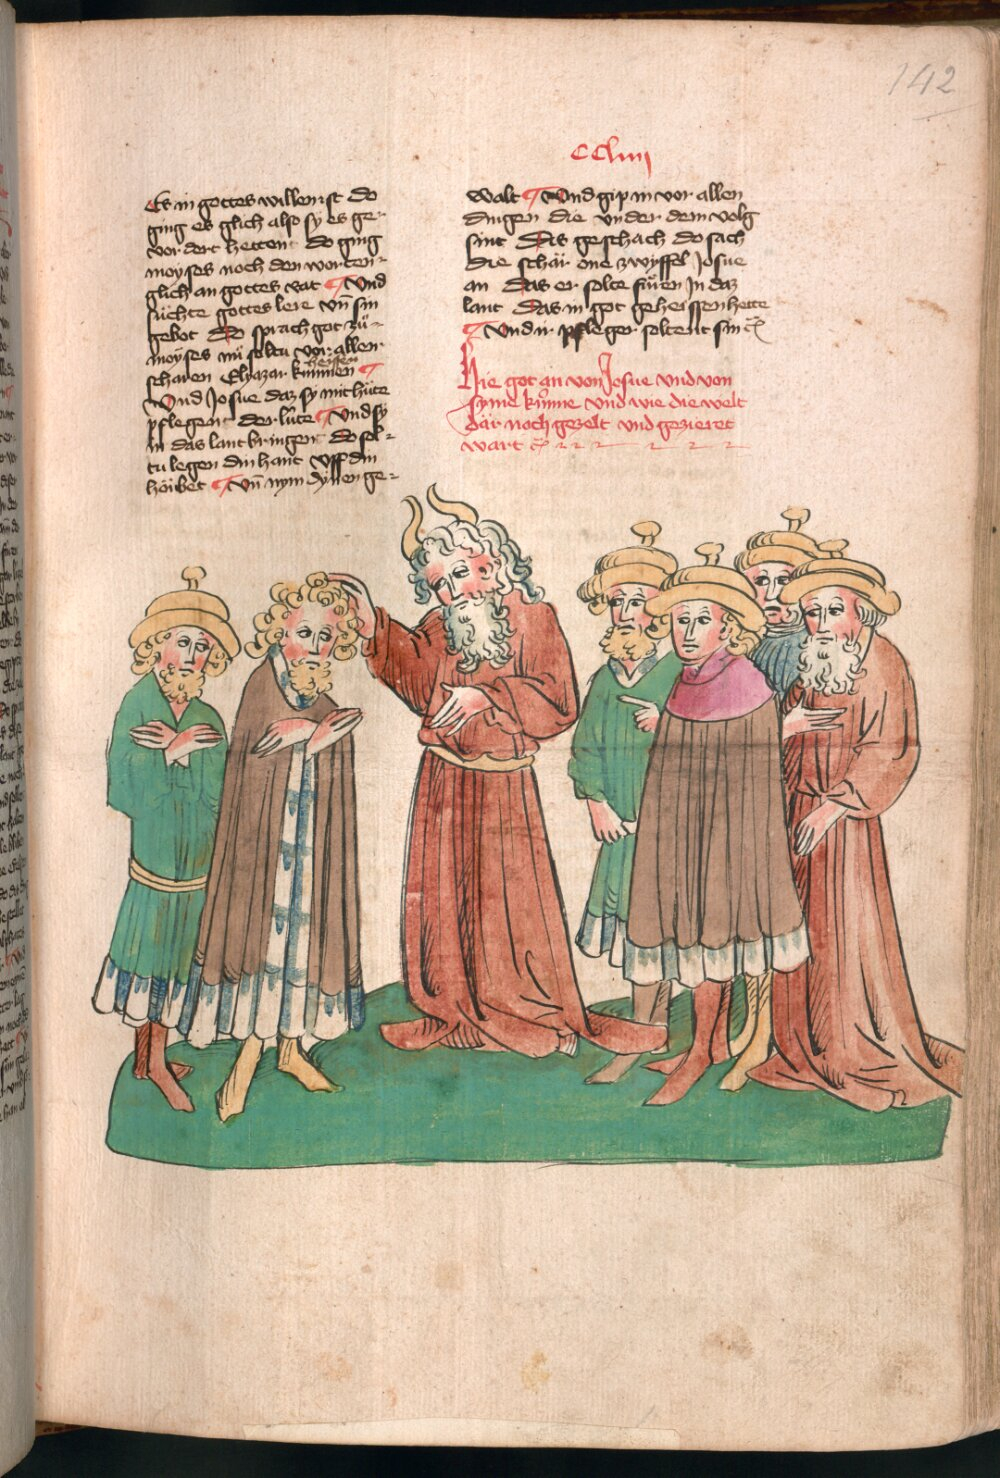 142
CCliiij
Es in gottes willen ist do
ging es glich also sy es ge-
vordert hetten do ging
moyses noch den worten
glich an gottes rat Und
suͤchte gottes lere vn̄ sin
gebot Do sprach got zuͦ
moyses nuͦ soltu vor allen
scharen Elyazar heissen kummen
Und Josue daz sy mit huͤte
pflegent der luͤte Und sy
in das lant bringent do sol-
tu legen din hant vff din
hoͤibet Vn̄ nym dynen ge-
walt Und gip in vor allen
dingen die vnder dem volg
sint Dis geschach do sach
die schar one zwyffel Josue
an Das er solte fuͤren In daz
lant Das in got geheissen hette
Und ir pfleger soltent sin
Hie got an von Josue vnd von
syme kunne vnd wie die welt
dar noch gezelt vnd gezieret
wart